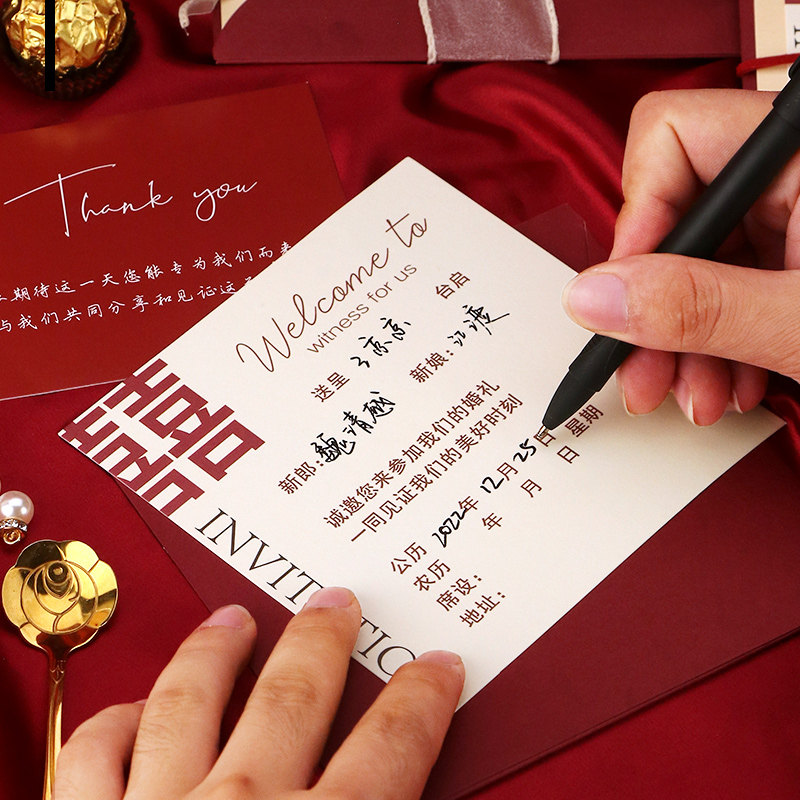 Thank you
期待这一天您能专为我们而来
与我们共同分享和见证这
Welcome to
witness for us
送呈 台启
新郎:魏清越 新娘:江渡
诚邀您来参加我们的婚礼
一同见证我们的美好时刻
公历 2022年 12月 25日 星期
农历 年 月 日
席设:
地址:
囍
INVIT TIO